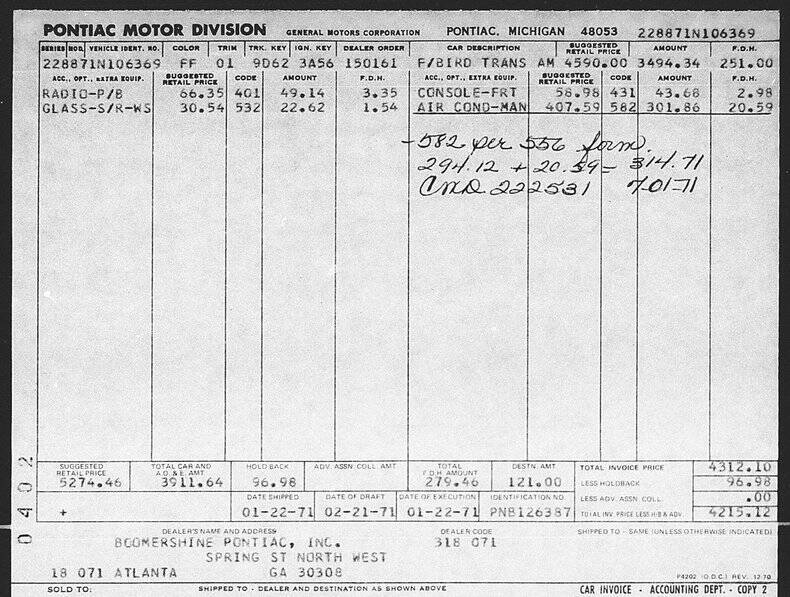 PONTIAC MOTOR DIVISION GENERAL MOTORS CORPORATION PONTIAC, MICHIGAN 48053 228871N106369
SERIES MOD. VEHICLE IDENT. NO. COLOR TRIM TRK. KEY IGN. KEY DEALER ORDER CAR DESCRIPTION SUGGESTED RETAIL PRICE AMOUNT F.D.H.
228871N106369 FF 01 9D62 3A56 150161 F/BIRD TRANS AM 4590.00 3494.34 251.00
ACC., OPT., EXTRA EQUIP. SUGGESTED RETAIL PRICE CODE AMOUNT F.D.H. ACC., OPT., EXTRA EQUIP. SUGGESTED RETAIL PRICE CODE AMOUNT F.D.H.
RADIO-P/B 66.35 401 49.14 3.35 CONSOLE-FRT 58.98 431 43.68 2.98
GLASS-S/R-WS 30.54 532 22.62 1.54 AIR COND-MAN 407.59 582 301.86 20.59
-582 per 556 form.
294.12 + 20.59 = 314.71
222531 7-01-71
SUGGESTED RETAIL PRICE TOTAL CAR AND A.O. & E. AMT. HOLD BACK ADV. ASSN. COLL. AMT. TOTAL F.D.H. AMOUNT DESTN. AMT. TOTAL INVOICE PRICE 4312.10
5274.46 3911.64 96.98 279.46 121.00 LESS HOLDBACK 96.98
DATE SHIPPED DATE OF DRAFT DATE OF EXECUTION IDENTIFICATION NO. LESS ADV. ASSN. COLL. .00
+ 01-22-71 02-21-71 01-22-71 PNB126387 TOTAL INV. PRICE LESS H/B & ADV. 4215.12
0402
DEALER'S NAME AND ADDRESS DEALER CODE SHIPPED TO - SAME (UNLESS OTHERWISE INDICATED)
BOOMERSHINE PONTIAC, INC. 318 071
SPRING ST NORTH WEST
18 071 ATLANTA GA 30308
P4202 (O.D.C.) REV. 12-70
SOLD TO: SHIPPED TO - DEALER AND DESTINATION AS SHOWN ABOVE CAR INVOICE - ACCOUNTING DEPT. - COPY 2